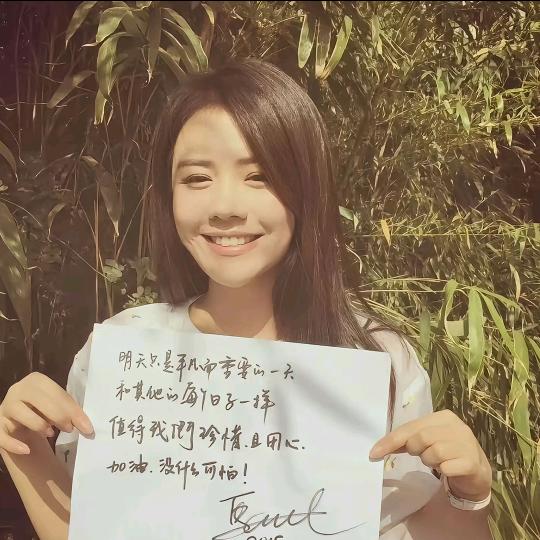 明天只是平凡而重要的一天
和其他的每个日子一样
值得我们珍惜.且用心.
加油.没什么可怕!